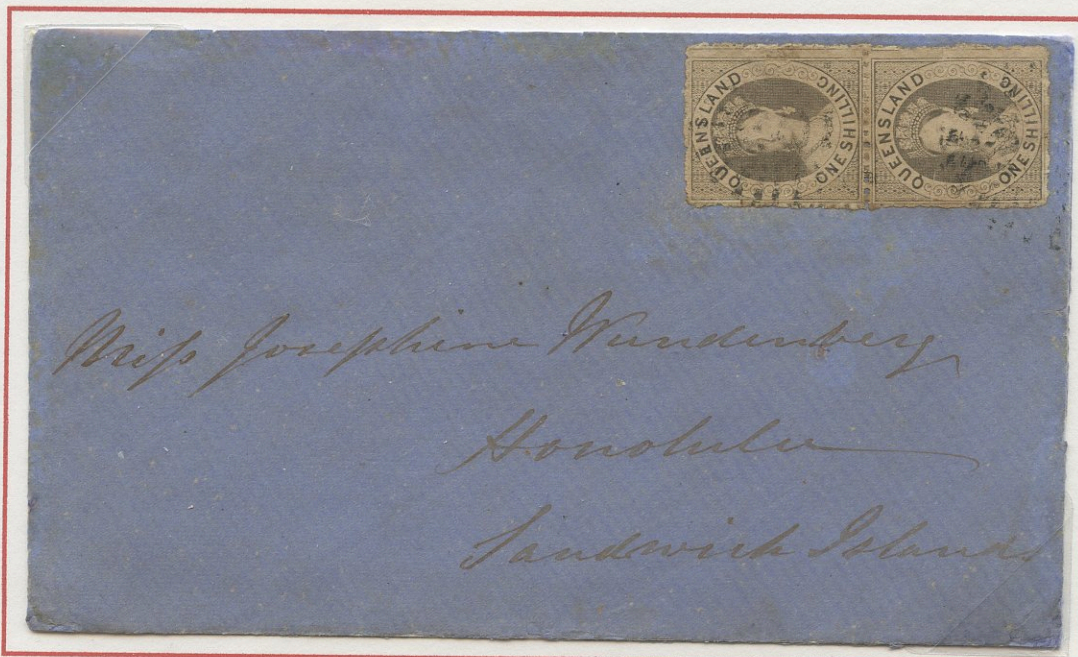 QUEENSLAND
ONE SHILLING
QUEENSLAND
ONE SHILLING
Miss Josephine Wundenberg
Honolulu
Sandwich Islands